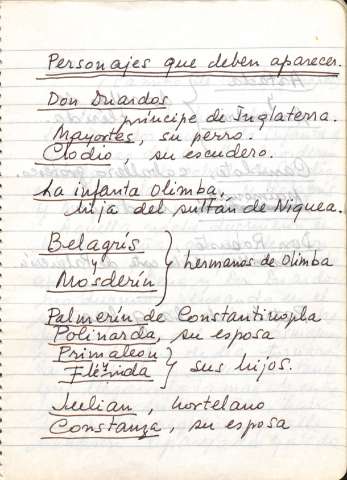 Personajes que deben aparecer.
Don Duardos
príncipe de Inglaterra.
Mayortes, su perro.
Clodio, su escudero.
La infanta Olimba,
hija del sultán de Niquea.
Belagrís
y
Mosderín
hermanos de Olimba
Palmerín de Constantinopla
Polinarda, su esposa
Primaleon
y
Flérida
sus hijos.
Julian, hortelano
Constanza, su esposa